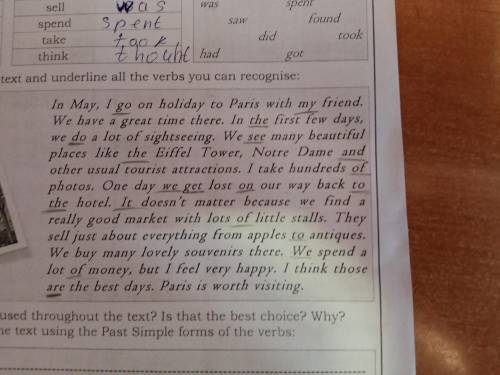 sell was was spent
spend spent saw found
take took did took
think thouht had got
text and underline all the verbs you can recognise:
In May, I go on holiday to Paris with my friend.
We have a great time there. In the first few days,
we do a lot of sightseeing. We see many beautiful
places like the Eiffel Tower, Notre Dame and
other usual tourist attractions. I take hundreds of
photos. One day we get lost on our way back to
the hotel. It doesn't matter because we find a
really good market with lots of little stalls. They
sell just about everything from apples to antiques.
We buy many lovely souvenirs there. We spend a
lot of money, but I feel very happy. I think those
are the best days. Paris is worth visiting.
used throughout the text? Is that the best choice? Why?
he text using the Past Simple forms of the verbs: